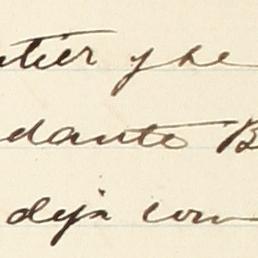 ntier y he
dante B
deja com